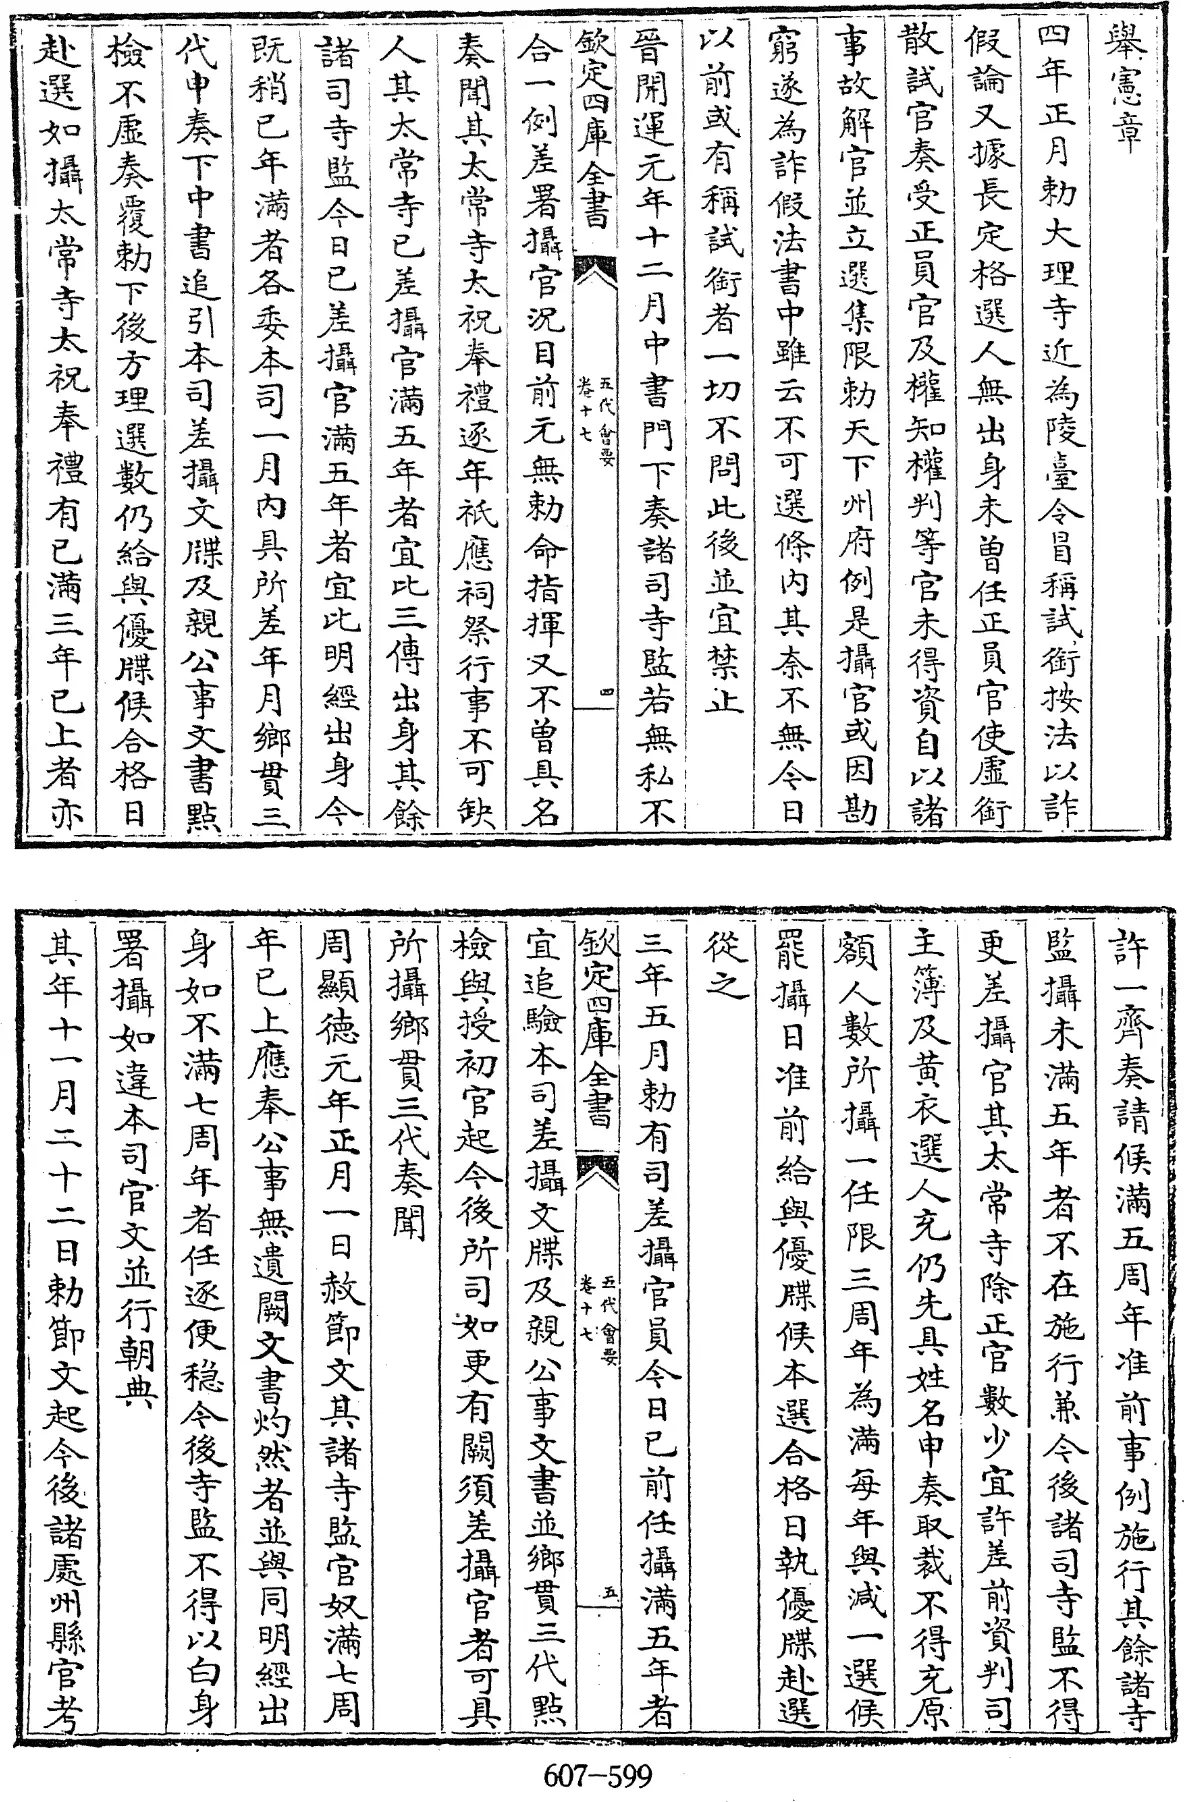 舉憲章
四年正月勅大理寺近為陵臺令冒稱試銜按法以詐
假論又據長定格選人無出身未曽任正員官使虛銜
散試官奏受正員官及權知權判等官未得資自以諸
事故解官並立選集限勅天下州府例是攝官或因勘
窮遂為詐假法書中雖云不可選條内其奈不無今日
以前或有稱試銜者一切不問此後並宜禁止
晉開運元年十二月中書門下奏諸司寺監若無私不
欽定四庫全書
五代會要
卷十七
四
合一例差署攝官況目前元無勅命指揮又不曽具名
奏聞其太常寺太祝奉禮逐年祇應祠祭行事不可缺
人其太常寺已差攝官滿五年者宜比三傳出身其餘
諸司寺監今日已差攝官滿五年者宜比明經出身今
既稍已年滿者各委本司一月内具所差年月鄉貫三
代申奏下中書追引本司差攝文牒及親公事文書點
檢不虛奏覆勅下後方理選數仍給與優牒候合格日
赴選如攝太常寺太祝奉禮有已滿三年已上者亦
許一齊奏請候滿五周年准前事例施行其餘諸寺
監攝未滿五年者不在施行兼今後諸司寺監不得
更差攝官其太常寺除正官數少宜許差前資判司
主簿及黄衣選人充仍先具姓名申奏取裁不得充原
額人數所攝一任限三周年為滿每年與減一選候
罷攝日准前給與優牒候本選合格日執優牒赴選
從之
三年五月勅有司差攝官員今日已前任攝滿五年者
欽定四庫全書
五代會要
卷十七
五
宜追驗本司差攝文牒及親公事文書並鄉貫三代點
檢與授初官起今後所司如更有闕須差攝官者可具
所攝鄉貫三代奏聞
周顯德元年正月一日赦節文其諸寺監官奴滿七周
年已上應奉公事無遺闕文書灼然者並與同明經出
身如不滿七周年者任逐便穏今後寺監不得以白身
署攝如違本司官文並行朝典
其年十一月二十二日勅節文起今後諸處州縣官考
607-599